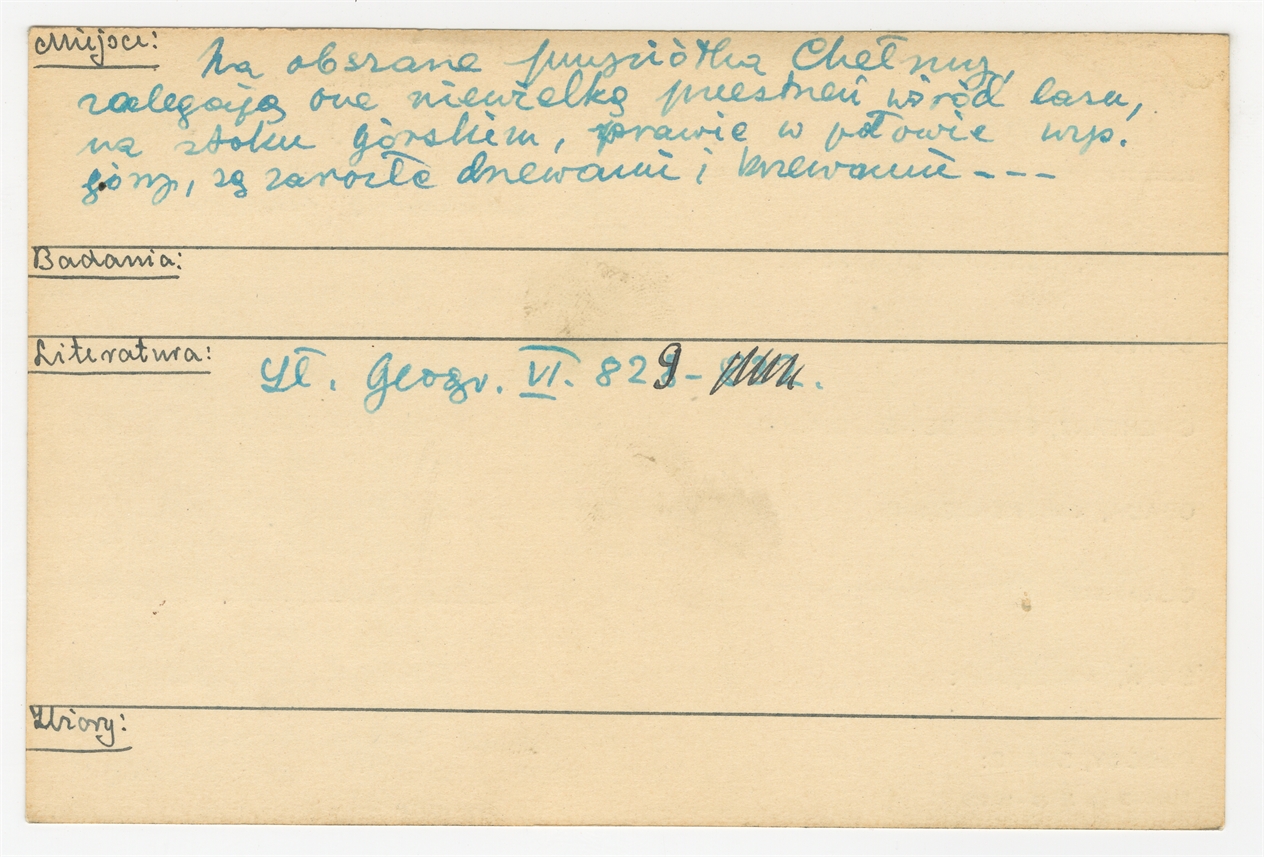 Miejsce:
Na obszarze przysiółka Chełmy,
zalegają one niewielką przestrzeń wśród lasu,
na stoku górskim, prawie w połowie wys.
góry, są zarosłe drzewami i krzewami - - -
Badania:
Literatura:
Sł. Geogr. VI. 829 -
Zbiory: